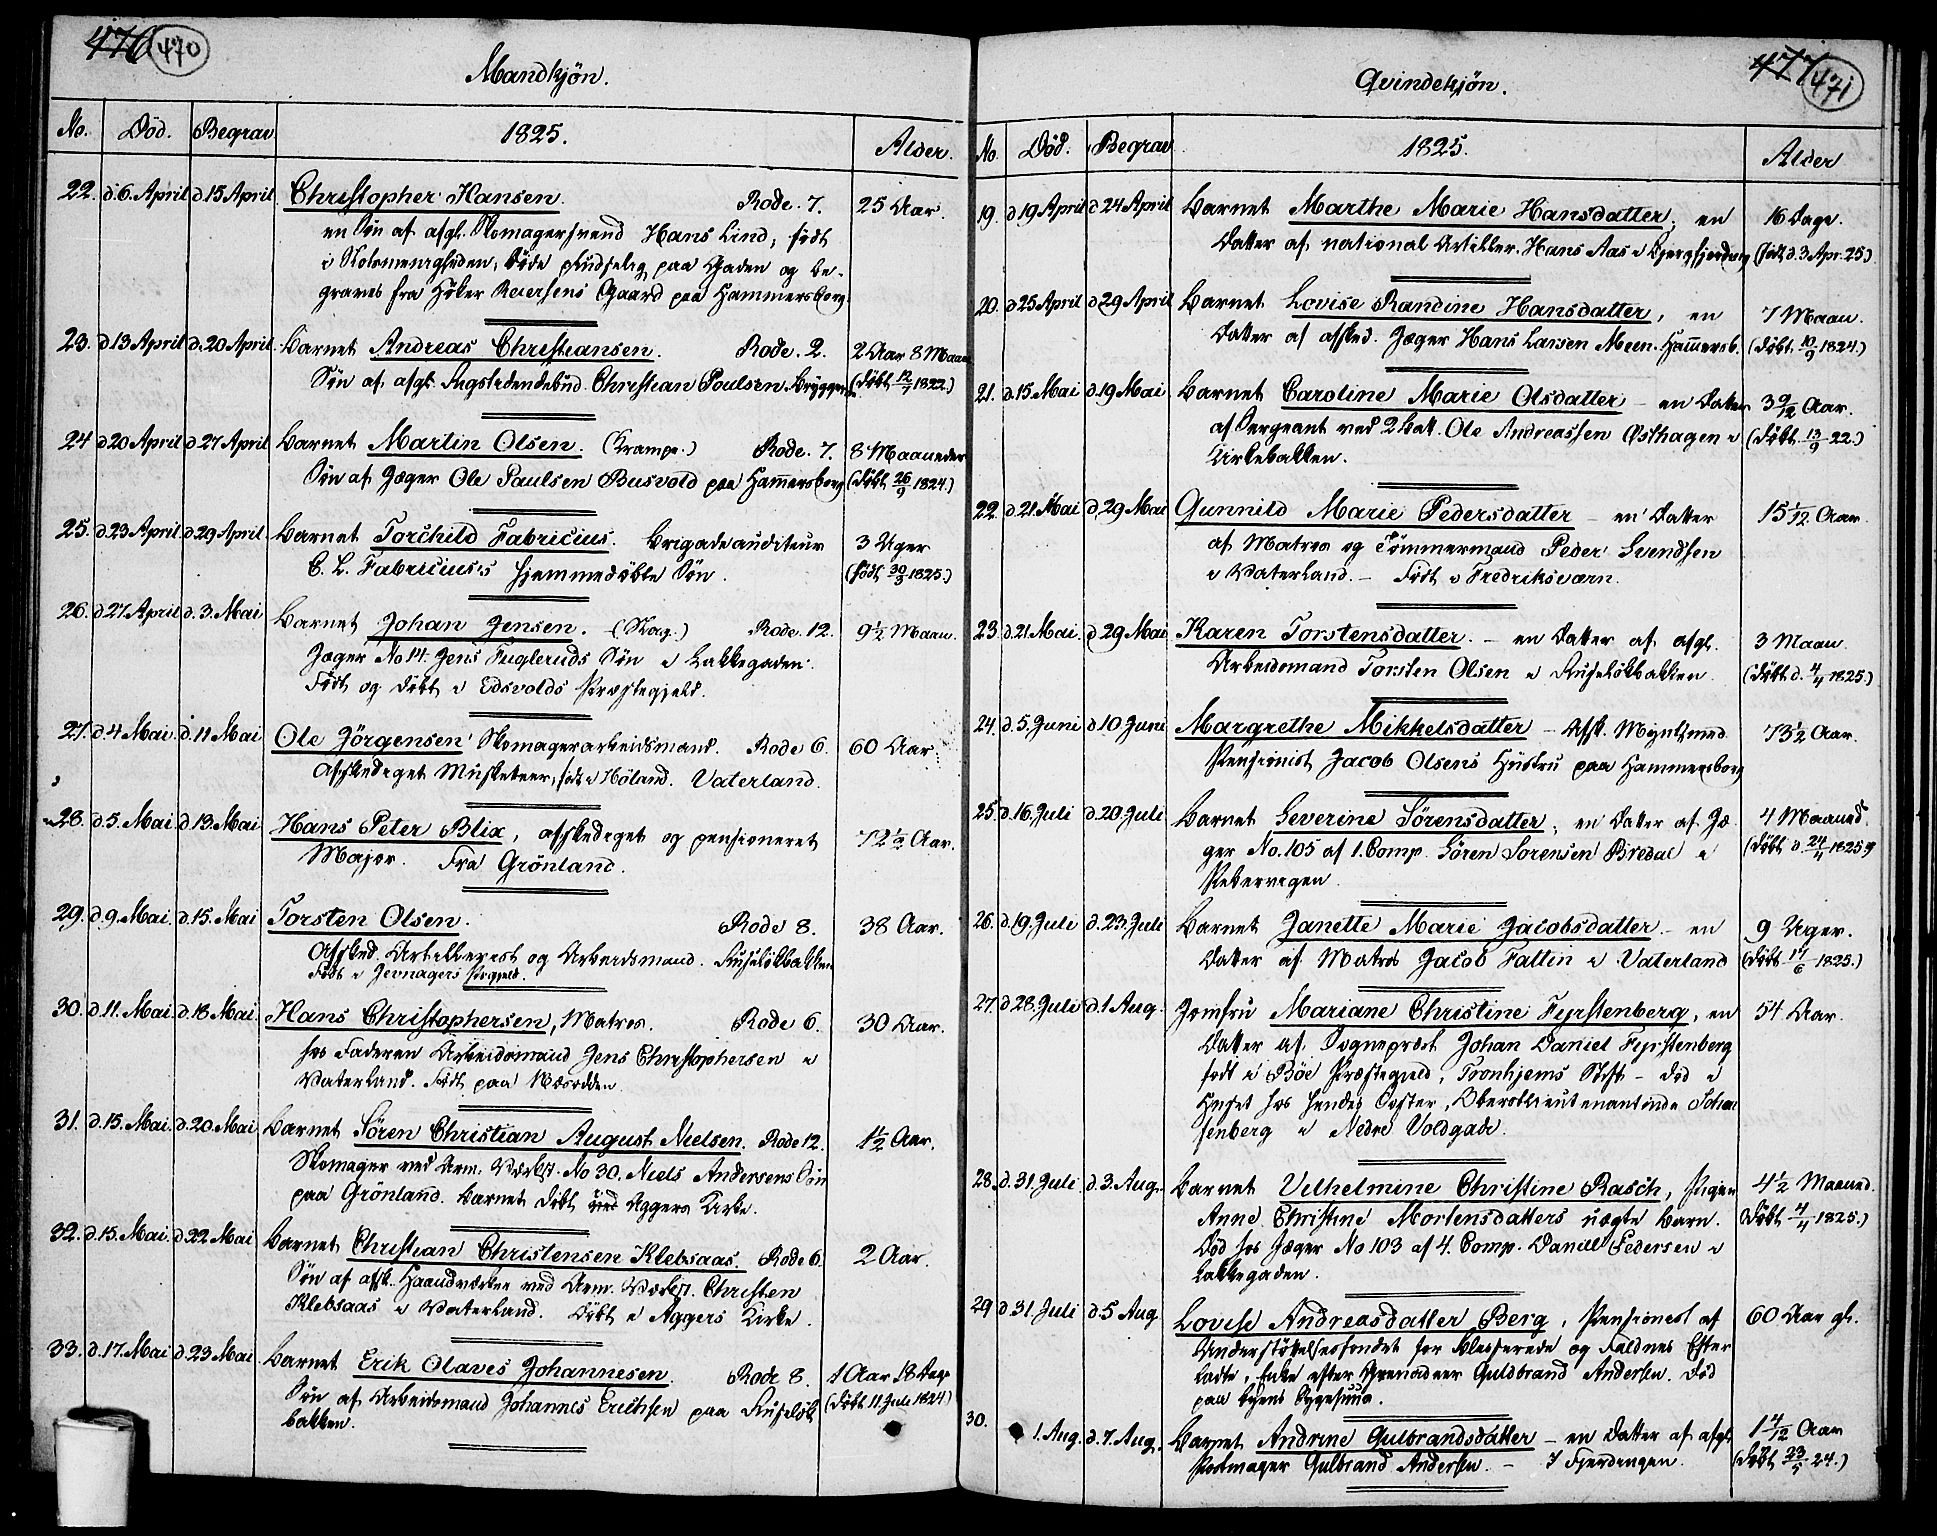 476 470
Mandkjön.
No. Död. Begrav 1825. Alder.
22. d.6. April d.15 April Christopher Hansen. Rode. 7. 25 Aar.
en Sön af afgl. Skomagersvend Hans Lind, födt
døde pludselig paa Gaden og be-
graves fra Höker Reiersens Gaard paa Hammersborg.
23. d.13 April d.20 April. Barnet Andreas Christiansen. Rode. 2. 2 Aar 8 Maan
Sön af afgl. Christian Poulsen Bryggen (döbt 12/7 1822.)
24 d.20 April d.27 April Barnet Martin Olsen. (Krampe.) Rode. 7. 8 Maaneder
Sön af Jæger Ole Paulsen Busvold paa Hammersborg (döbt 26/9 1824.)
25. d.23 April d.29 April. Barnet Torchild Fabricius. Brigadeauditeur 3 Uger
C. L. Fabricius's hjemmedöbte Sön. (födt 30/3 1825.)
26. d.27 April d.3. Mai Barnet Johan Jensen. Rode. 12. 9½ Maan.
Jæger No 14. Jens Fugleruds Sön i Lakkegaden.
Födt og döbt i Edsvolds Præstegjeld.
27. d.4 Mai. d.11 Mai Ole Jörgensen Skomagerarbeidsmand. Rode 6. 60 Aar.
Afskediget Musketeer, födt i Höland. Vaterland.
28. d.5. Mai d.13. Mai Hans Peter Blix, afskediget og pensioneret 72½ Aar.
Major. Fra Grönland.
29. d.9. Mai. d.15. Mai Torsten Olsen. Rode 8. 38 Aar.
Afsked. Artillerist og Arbeidsmand. Ruselökbakken
Födt i Jevnagers Prgjeld.
30. d.11. Mai. d.18. Mai. Hans Christophersen, Matros. Rode 6. 30 Aar.
hos Faderen Arbeidsmand Jens Christophersen i
Vaterland. Födt paa Næsodden.
31. d.15. Mai. d.20. Mai Barnet Sören Christian August Nielsen. Rode 12. 1½ Aar.
Skomager ved Arm. Værkst. No 30. Niels Andersens Sön
paa Grönland. Barnet döbt i Aggers Kirke.
32. d.15. Mai. d.22 Mai Barnet Christian Christensen Klebsaas. Rode 6. 2 Aar.
Sön af afsk. Haandværker ved Arm. Værkst. Christen
Klebsaas i Vaterland. Döbt i Aggers Kirke.
33. d.17. Mai d.23 Mai Barnet Erik Olaves Johannesen. Rode 8. 1 Aar 18 Dage
Sön af Arbeidsmand Johannes Erichsen paa Ruselök (döbt 11 Juli 1824)
bakken.
477 471
Qvindekjön.
No. Död. Begrav 1825. Alder
19. d.19 April d.24 April Barnet Marthe Marie Hansdatter, en 16 Dage.
Datter af national Artiller. Hans Aas i Bjergfjerding (födt d. 3 Apr. 25.)
20. d.25 April d.29 April Barnet Lovise Randine Hansdatter, en 7 Maan.
Datter af afsked. Jæger Hans Larsen Meen. Hammersb. (döbt. 10/9 1824.)
21. d.15. Mai d.19 Mai Barnet Caroline Marie Olsdatter – en Datter 3 9/12 Aar.
af Sergeant ved 2 Batt. Ole Andreassen Østhagen i (döbt. 13/9 22.)
Kirkebakken.
22. d.21. Mai d.29 Mai Gunnild Marie Pedersdatter – en Datter 15 1/12 Aar.
af Matros og Tömmermand Peder Svendsen
i Vaterland. – Födt i Fredriksværn.
23. d.21 Mai. d.29 Mai Karen Torstensdatter. – en Datter af afgl. 3 Maan.
Arbeidsmand Torsten Olsen i Ruselökbakken. (döbt d. 4/4 1825.)
24. d.5. Juni d.10 Juni Margrethe Mikkelsdatter – Afsk. 73½ Aar.
Pensionist Jacob Olsens Hustru paa Hammersborg
25. d.16. Juli d.20. Juli Barnet Severine Sörensdatter, en Datter af Jæ- 4 Maaned.
ger No. 105 af 1. Comp. Sören Sorensen Bredal i (döbt d. 24/4 1825.)
Pebervigen.
26. d.19. Juli d.23. Juli Barnet Janette Marie Jacobsdatter. – en 9 Uger.
Datter af Matros Jacob Fattin i Vaterland (döbt 17/6 1825.)
27. d.28. Juli d.1 Aug. Jomfru Mariane Christine Fyrstenberg, en 54 Aar.
Datter af Sognepræst Johan Daniel Fyrstenberg
födt i Böe Præstegjeld, Tronhjems Stift – död i
Huset hos hendes Söster, Oberstlieutenantinde Johan
senberg i Nedre Voldgade.
28. d.31. Juli d.3 Aug. Barnet Vilhelmine Christine Rasch, Pigen 4½ Maaned.
Anne Christine Mortensdatters uægte Barn. (döbt 4/4 1825.)
Död hos Jæger No 103 af 4. Comp. Daniel Pedersen i
Lakkegaden.
29 d.31. Juli d.5 Aug. Lovise Andreasdatter Berg, Pensionist af 60 Aar gl.
Understöttelsesfondet for Blesserede og Faldnes Efter
ladte, Enke efter Grenadeer Guldbrand Andersen. Död
paa Byens Sygehuus.
30. 1. Aug. d.7. Aug. Barnet Andrine Gulbrandsdatter – en Datter af afgl. 1 4/12 Aar
Gulbrand Andersen. – I Fjerdingen. (döbt 23/5 24.)